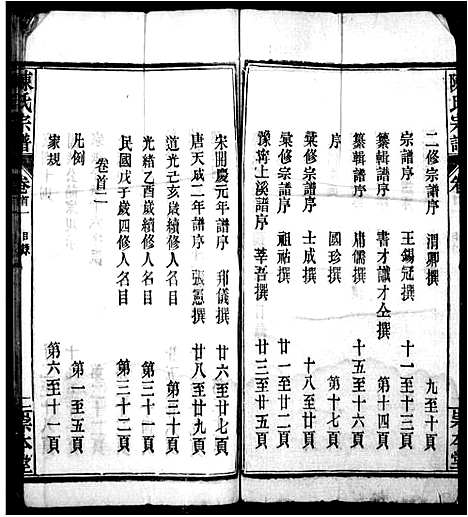 陳氏宗譜
二修宗譜序 渭卿撰 九至十頁
宗譜序 王錫冠撰 十一至十三頁
纂輯譜序 書才讖才仝撰 第十四頁
纂輯譜序 庸儒撰 十五至十六頁
序 國珍撰 第十七頁
彙修譜序 士成撰 十八至廿頁
彙修譜序 祖祐撰 廿一至廿二頁
豫寧上溪譜序 莘吾撰 廿三至廿五頁
宋開慶元年譜序 邦儀撰 廿六至廿七頁
唐天成二年譜序 張憲撰 廿八至廿九頁
道光己亥歲續修人名目 第三十頁
光緒乙酉歲續修人名目 第三十一頁
民國戊子歲四修人名目 第三十二頁
卷首二
凡例 第一至五頁
家規 第六至十一頁
陳氏宗譜 卷首 目錄 二 聚本堂